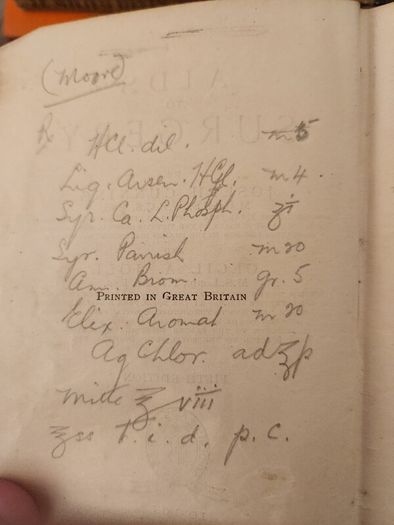 (Moore)
℞ HCl. dil. ♏ 5
Liq. Arsen. HCl. ♏ 4.
Syr. Ca. L. Phosph. ʒi
Syr. Parrish ♏ 20
Am. Brom. gr. 5
PRINTED IN GREAT BRITAIN
Elix. Aromat ♏ 20
Aq Chlor. ad ℥p
Mitte ℥ viii
℥ss t. i. d. p. c.